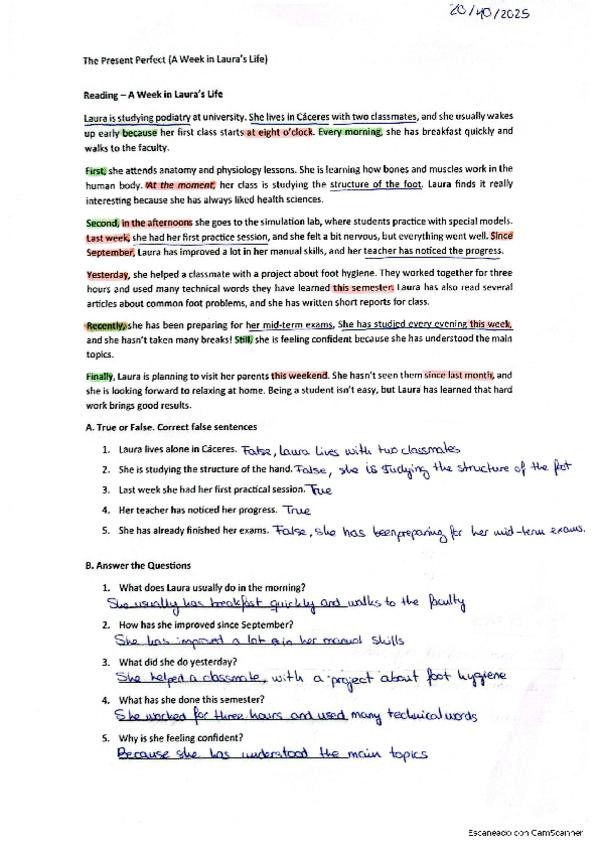 20/10/2025
The Present Perfect (A Week in Laura's Life)
Reading – A Week in Laura's Life
Laura is studying podiatry at university. She lives in Cáceres with two classmates, and she usually wakes
up early because her first class starts at eight o'clock. Every morning, she has breakfast quickly and
walks to the faculty.
First, she attends anatomy and physiology lessons. She is learning how bones and muscles work in the
human body. At the moment, her class is studying the structure of the foot. Laura finds it really
interesting because she has always liked health sciences.
Second, in the afternoons she goes to the simulation lab, where students practice with special models.
Last week, she had her first practice session, and she felt a bit nervous, but everything went well. Since
September, Laura has improved a lot in her manual skills, and her teacher has noticed the progress.
Yesterday, she helped a classmate with a project about foot hygiene. They worked together for three
hours and used many technical words they have learned this semester. Laura has also read several
articles about common foot problems, and she has written short reports for class.
Recently, she has been preparing for her mid-term exams. She has studied every evening this week,
and she hasn't taken many breaks! Still, she is feeling confident because she has understood the main
topics.
Finally, Laura is planning to visit her parents this weekend. She hasn't seen them since last month, and
she is looking forward to relaxing at home. Being a student isn't easy, but Laura has learned that hard
work brings good results.
A. True or False. Correct false sentences
1. Laura lives alone in Cáceres. False, Laura lives with two classmates
2. She is studying the structure of the hand. False, she is studying the structure of the foot
3. Last week she had her first practical session. True
4. Her teacher has noticed her progress. True
5. She has already finished her exams. False, she has been preparing for her mid-term exams.
B. Answer the Questions
1. What does Laura usually do in the morning?
She usually has breakfast quickly and walks to the faculty
2. How has she improved since September?
She has improved a lot in her manual skills
3. What did she do yesterday?
She helped a classmate, with a project about foot hygiene
4. What has she done this semester?
She worked for three hours and used many technical words
5. Why is she feeling confident?
Because she has understood the main topics
Escaneado con CamScanner